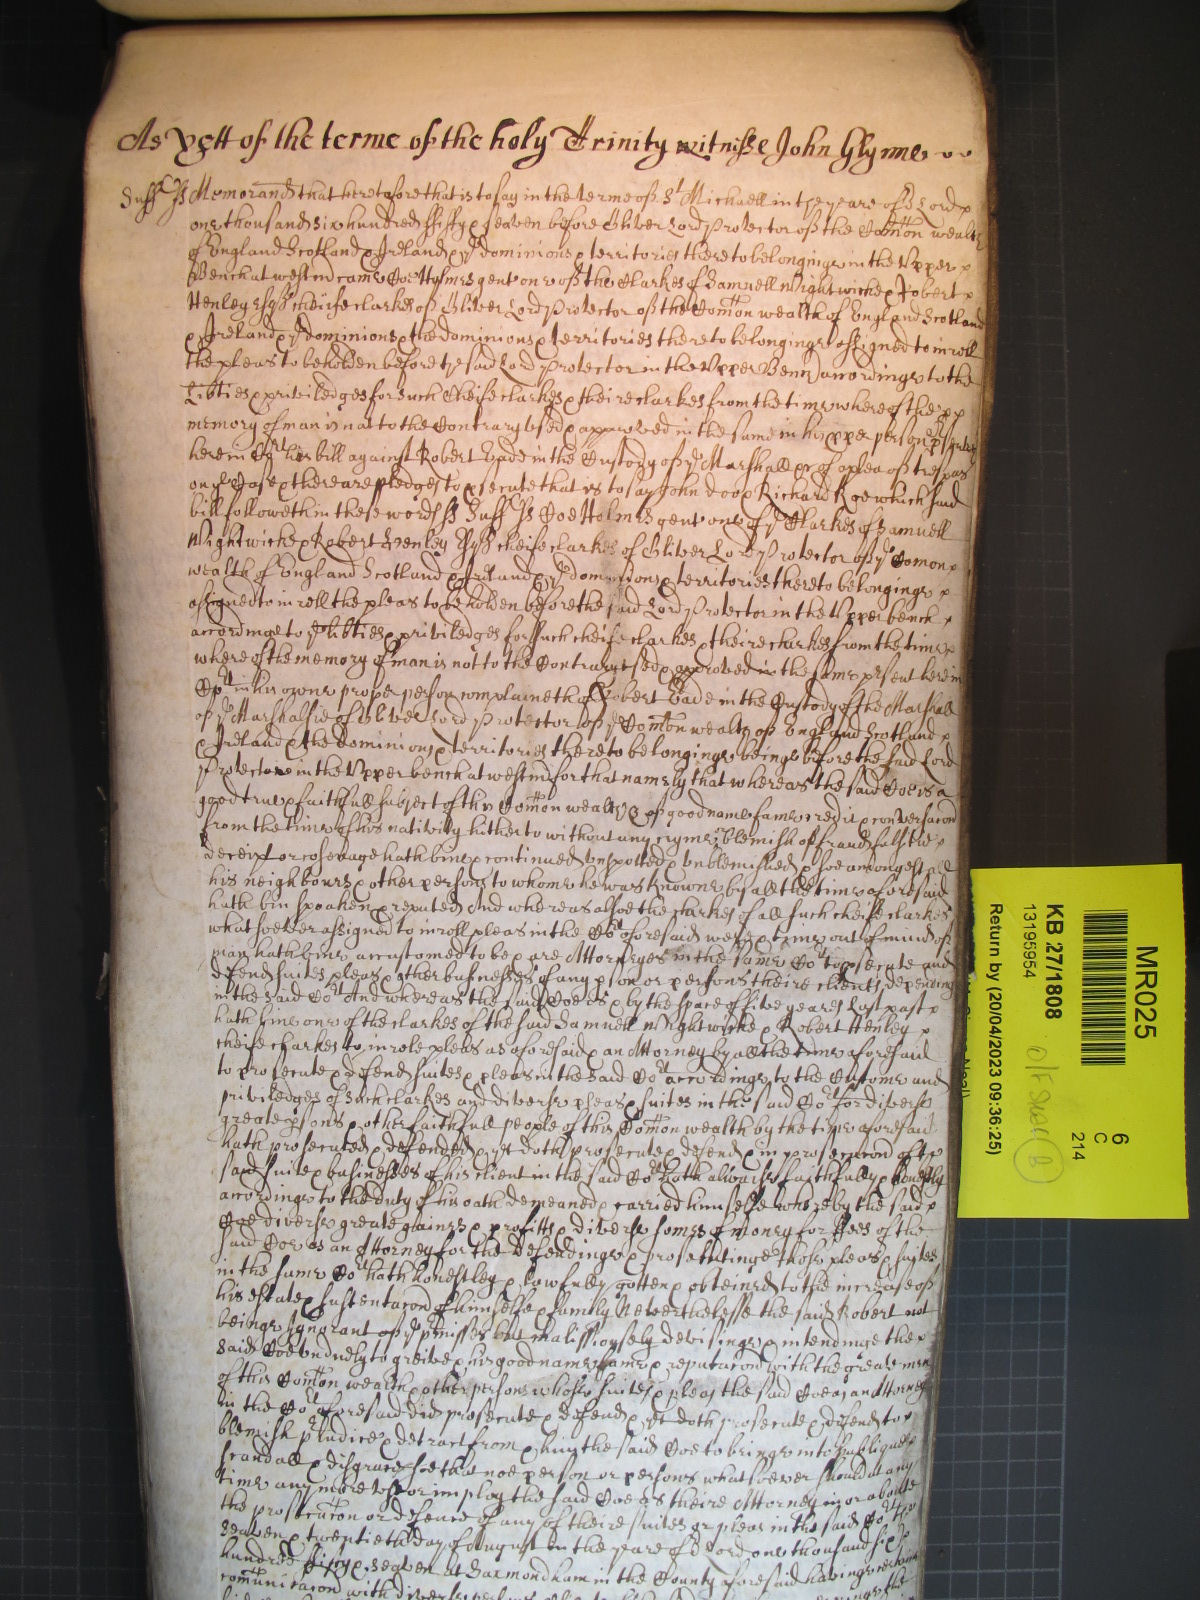 As yett of the terme of the holy Trinity witnisse John Glynne
Suff ss Memorand that heretofore that is to say in the terme of St Michaell in the yeare of or Lord
one thousand six hundred fiffty & seaven before Oliver Lord Protector of the Comon wealth
of England Scotland & Ireland & ye dominions & territories thereto belonginge in the Upper
Bench at westm came Coe Holmes gent one of the Clarkes of Samuell Wightwicke & Robert
Henley Esqs cheife clarkes of Oliver Lord Protector of the Comon wealth of England Scotland
& Ireland & ye dominions & the dominions & territories thereto belonginge assigned to inroll
the pleas to be holden before ye said Lord Protector in the Upper Bench accordinge to the
Libties & priviledges for such Cheife clarkes & theire clarkes from the time whereof the
memory of man is not to the Contrary used & approved in the same in his pper person
here in Cort his bill against Robert Cade in the Custody of ye Marshall &c of a plea of trespas
on ye Case & there are pledges to psecute that is to say John Doo & Richard Roe which said
bill followeth in these words ss Suff ss Coe Holmes gent one of ye Clarkes of Samuell
Wightwicke & Robert Henley Esqs cheife clarkes of Oliver Lord Protector of ye Comon
wealth of England Scotland & Ireland & ye dominions & territories thereto belonginge
assigned to inroll the pleas to be holden before the said Lord Protector in the Upper bench
accordinge to ye libties & priviledges for such cheife clarkes & theire clarkes from the time
whereof the memory of man is not to the Contrary used & approved in the same psent here in
Cort in his owne proper person complaineth of Robert Cade in the Custody of the Marshall
of ye Marshalsie of Oliver Lord Protector of ye Comon wealth of England Scotland
& Ireland & the dominions & territories thereto belonginge beinge before the said Lord
Protector in the Upper bench at westm for that namely that whereas the said Coe is a
good true & faithfull subject of this Comon wealth & of good name fame credit & conversacon
from the time of his nativity hitherto without any cryme blemish of fraud falsthe
deceipt or cosenage hath bine & continued unspotted & unblemished & soe amongest all
his neighbours & other persons to whome he was knowne by all the time aforesaid
hath bin spoaken & reputed And whereas alsoe the clarkes of all such cheife clarkes
whatsoever assigned to inroll pleas in the Cort aforesaid were & time out of mind of
man hath bine accustomed to be & are Attorneyes in the same Cort to psecute and
defend suites pleas & other businesses of any pson or persons theire clients depending
in the said Cort And whereas the said Coe is & by the space of five yeares last past
hath bine one of the clarkes of the said Samuell Wightwicke & Robert Henley
cheife clarkes to inrole pleas as aforesaid & an Attorney by all the time aforesaid
to prosecute & defend suites & pleas in the said Cort accordinge to the Custome and
priviledges of such clarkes and diverse pleas & suites in the said Cort for diverse
greate psons & other faithfull people of this Comon wealth by the time aforesaid
hath prosecuted & defended & yet doth prosecute & defend & in prosecucon of the
said suites & businesses of his client in the said Cort hath alwaies faithfully & honestly
accordinge to the duty of his oath demeaned & carried himselfe whereby the said
Coe diverse greate gaines & profitts & diverse somes of money for ffees of the
said Coe as an Attorney for the defendinge & prosecutinge those pleas & suites
in the same Cort hath honestley & lawfully gotten & obteined to the increase of
his estate & sustentacon of himselfe & family Neverthelesse the said Robert not
beinge Ignorant of ye pmisses but malissiously devisinge & intendinge the
said Coe unduely to greive & his good name fame & reputacon with the greate men
of this Comon wealth & other persons whose suites & pleas the said Coe as an Attorney
in the Cort aforesaid did prosecute & defend & yet doth prosecute & defend to
blemish pjudice & detract from & him the said Coe to bringe into publique
scandall & disgrace soe that noe person or persons whatsoever should at any
time any more use or imploy the said Coe as theire Attorney in or aboute
the prosecucon or defence of any of theire suites or pleas in the said Cort the
seaven & twentieth day of August in the yeare of or Lord one thousand six
hundred fifty & seaven at Saxmondham in the County aforesaid havinge
comunicacon with diverse persons
MR025
6
C
214
KB 27/1808
13195954
Return by (20/04/2023 09:36:25)